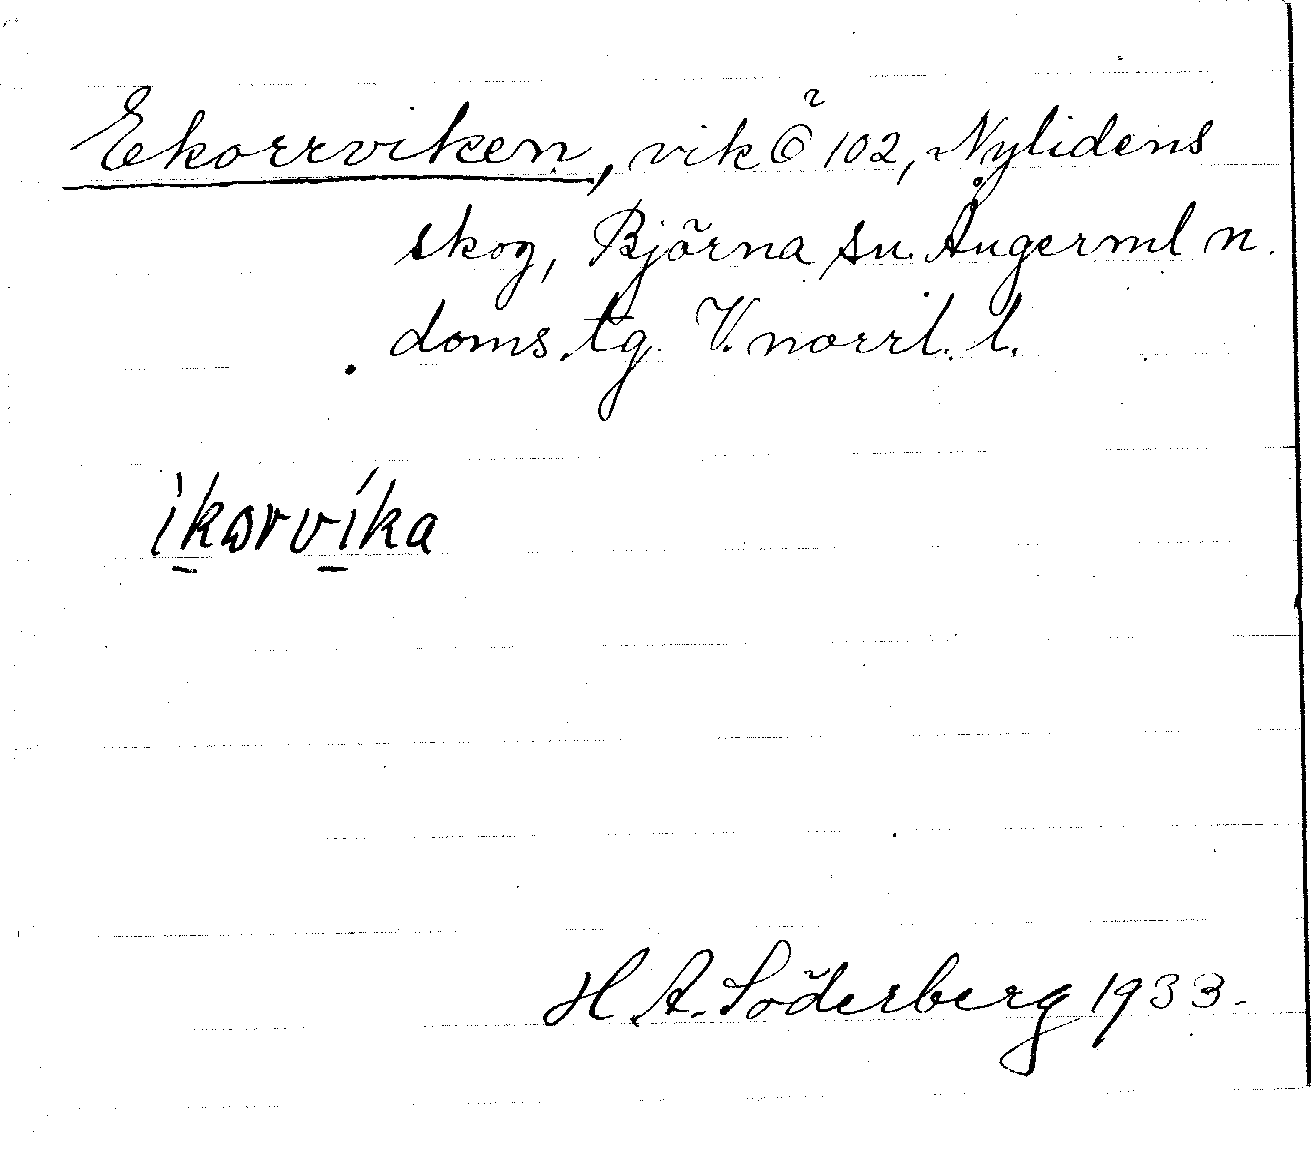 Ekorrviken, vik Ö 102, Nylidens
skog, Björna sn. Ångerml n.
doms.tg. V.norrl. l.
H A. Söderberg 1933.